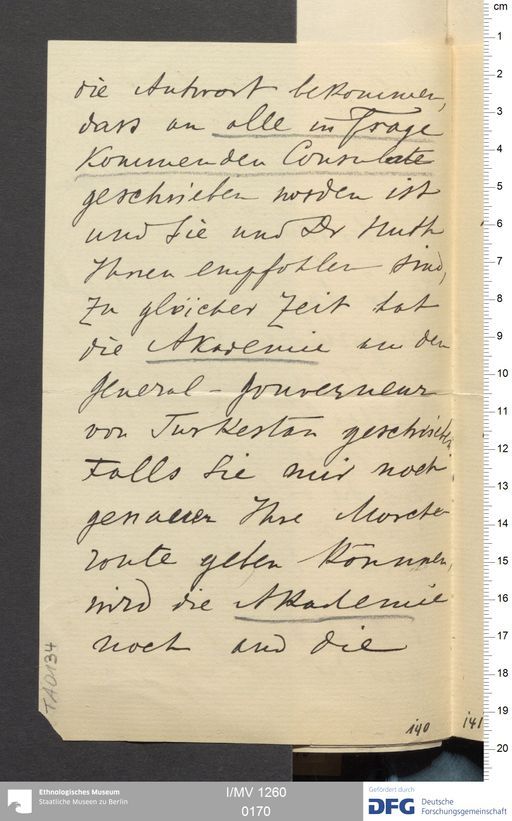 die Antwort bekommen,
dass an alle in Frage
kommenden Consulate
geschrieben worden ist
und Sie und Dr Huth
Ihnen empfohlen sind,
Zu gleicher Zeit hat
die Akademie an den
General-Gouverneur
von Turkestan geschrieben
Falls Sie mir noch
genauer Ihre Marche-
route geben können,
wird die Akademie
noch an die
TA0134
140
141
cm
1
2
3
4
5
6
7
8
9
10
11
12
13
14
15
16
17
18
19
20
Ethnologisches Museum
Staatliche Museen zu Berlin
I/MV 1260
0170
Gefördert durch
DFG Deutsche
Forschungsgemeinschaft